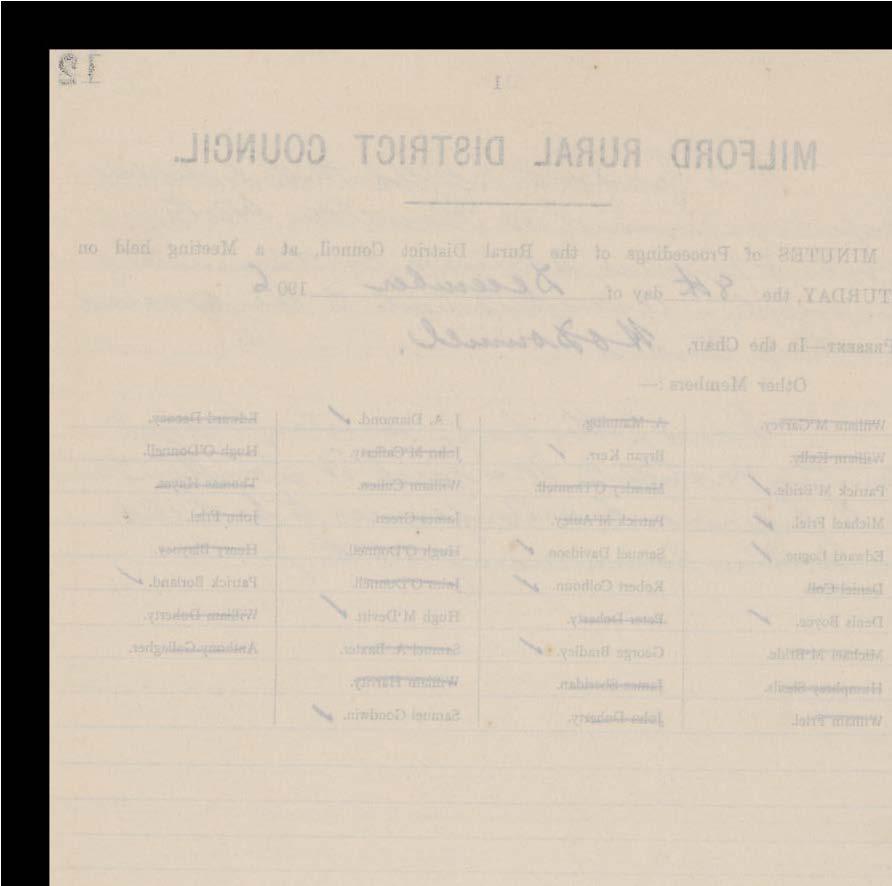 12
1
MILFORD RURAL DISTRICT COUNCIL.
MINUTES of Proceedings of the Rural District Council, at a Meeting held on
TURDAY, the 8th day of December 1906
PRESENT—In the Chair,
Other Members :—
William M'Garvey. A. Manning. J. A. Diamond. ✓ Edward Deeney.
William Kelly. Bryan Kerr. ✓ John M'Cafferty. Hugh O'Donnell.
Patrick M'Bride. ✓ Manley O'Donnell. William Cullen. Thomas Hayes.
Michael Friel. ✓ Patrick M'Auley. James Green. John Friel.
Edward Logue. ✓ Samuel Davidson. ✓ Hugh O'Donnell. Henry Blayney.
Daniel Coll. Robert Colhoun. ✓ John O'Donnell. Patrick Borland. ✓
Denis Boyce. ✓ Peter Doherty. Hugh M'Devitt. ✓ William Doherty.
Michael M'Bride. George Bradley. ✓ Samuel A. Baxter. Anthony Gallagher.
Humphrey Sheils. James Sheridan. William Harvey.
William Friel. John Doherty. Samuel Goodwin. ✓